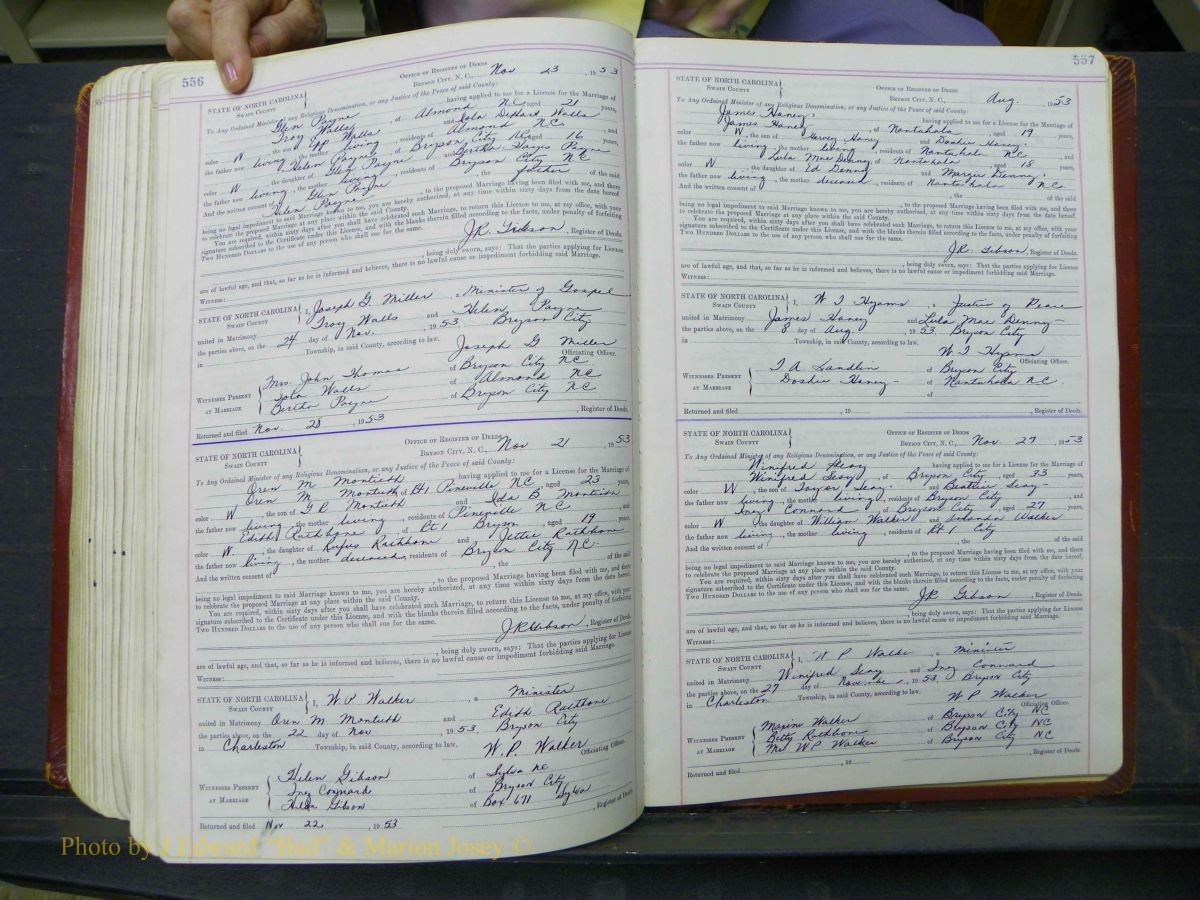 556
OFFICE OF REGISTER OF DEEDS
STATE OF NORTH CAROLINA
BRYSON CITY, N. C., Nov 23, 1953
SWAIN COUNTY
To Any Ordained Minister of any Religious Denomination, or any Justice of the Peace of said County:
Glen Payne having applied to me for a License for the Marriage of
Troy Walls, of Almond N.C. aged 21 years,
color W, the son of Walls and Lola Walls
the father now living, the mother living, residents of Almond N.C., and
Helen Payne of Bryson City N.C. aged 16 years,
color W, the daughter of Glen Payne and Bertha Hayes Payne
the father now living, the mother living, residents of Bryson City NC
And the written consent of Glen Payne, the father of the said
Helen Payne, to the proposed Marriage having been filed with me, and there
being no legal impediment to said Marriage known to me, you are hereby authorized, at any time within sixty days from the date hereof,
to celebrate the proposed Marriage at any place within the said County.
You are required, within sixty days after you shall have celebrated such Marriage, to return this License to me, at my office, with your
signature subscribed to the Certificate under this License, and with the blanks therein filled according to the facts, under penalty of forfeiting
TWO HUNDRED DOLLARS to the use of any person who shall sue for the same.
J.R. Gibson, Register of Deeds.
, being duly sworn, says: That the parties applying for License
are of lawful age, and that, so far as he is informed and believes, there is no lawful cause or impediment forbidding said Marriage.
WITNESS:
STATE OF NORTH CAROLINA I, Joseph G Miller, a Minister of Gospel
SWAIN COUNTY
united in Matrimony Troy Walls and Helen Payne
the parties above, on the 24 day of Nov., 1953, Bryson City
in Township, in said County, according to law.
Joseph G Miller
Officiating Officer.
WITNESSES PRESENT AT MARRIAGE
Mrs. John Thomas of Bryson City NC
Lola Walls of Almond NC
Bertha Payne of Bryson City NC
Returned and filed Nov. 28, 1953 , Register of Deeds.
OFFICE OF REGISTER OF DEEDS
STATE OF NORTH CAROLINA
BRYSON CITY, N. C., Nov 21, 1953
SWAIN COUNTY
To Any Ordained Minister of any Religious Denomination, or any Justice of the Peace of said County:
Oren M Monteith having applied to me for a License for the Marriage of
Oren M Monteith of Rt 1 Pineville NC, aged 23 years,
color W, the son of G P Monteith and Ida B Monteith
the father now living, the mother living, residents of Pineville NC, and
Edith Rathbone of Rt 1 Bryson, aged 19 years,
color W, the daughter of Rufus Rathbone and Jettie Rathbone
the father now living, the mother deceased, residents of Bryson City NC.
And the written consent of , the of the said
, to the proposed Marriage having been filed with me, and there
being no legal impediment to said Marriage known to me, you are hereby authorized, at any time within sixty days from the date hereof,
to celebrate the proposed Marriage at any place within the said County.
You are required, within sixty days after you shall have celebrated such Marriage, to return this License to me, at my office, with your
signature subscribed to the Certificate under this License, and with the blanks therein filled according to the facts, under penalty of forfeiting
TWO HUNDRED DOLLARS to the use of any person who shall sue for the same.
J R Gibson, Register of Deeds.
, being duly sworn, says: That the parties applying for License
are of lawful age, and that, so far as he is informed and believes, there is no lawful cause or impediment forbidding said Marriage.
WITNESS:
STATE OF NORTH CAROLINA I, W P Walker, a Minister
SWAIN COUNTY
united in Matrimony Oren M Monteith and Edith Rathbone
the parties above, on the 22 day of Nov, 1953, Bryson City
in Charleston Township, in said County, according to law.
W. P. Walker
Officiating Officer.
WITNESSES PRESENT AT MARRIAGE
Helen Gibson of Sylva NC
Inez Connard of Bryson City
Hilda Gibson of Box 671 Sylva
Returned and filed Nov 22, 1953 , Register of Deeds
557
STATE OF NORTH CAROLINA
OFFICE OF REGISTER OF DEEDS
SWAIN COUNTY
BRYSON CITY, N. C., Aug. 1953
To Any Ordained Minister of any Religious Denomination, or any Justice of the Peace of said County:
James Haney, having applied to me for a License for the Marriage of
James Haney, of Nantahala, aged 19 years,
color W, the son of Harvey Haney and Doshie Haney,
the father now living, the mother living, residents of Nantahala N.C., and
Lula Mae Denny of Nantahala aged 18 years,
color W, the daughter of Ed Denny and Margie Denny,
the father now living, the mother deceased, residents of Nantahala N.C.
And the written consent of , the of the said
, to the proposed Marriage having been filed with me, and there
being no legal impediment to said Marriage known to me, you are hereby authorized, at any time within sixty days from the date hereof,
to celebrate the proposed Marriage at any place within the said County.
You are required, within sixty days after you shall have celebrated such Marriage, to return this License to me, at my office, with your
signature subscribed to the Certificate under this License, and with the blanks therein filled according to the facts, under penalty of forfeiting
TWO HUNDRED DOLLARS to the use of any person who shall sue for the same.
J.R. Gibson, Register of Deeds.
, being duly sworn, says: That the parties applying for License
are of lawful age, and that, so far as he is informed and believes, there is no lawful cause or impediment forbidding said Marriage.
WITNESS:
STATE OF NORTH CAROLINA I, W T Hyams, a Justice of Peace
SWAIN COUNTY
united in Matrimony James Haney and Lula Mae Denny
the parties above, on the 8 day of Aug, 1953, Bryson City
in Township, in said County, according to law.
W T Hyams
Officiating Officer.
WITNESSES PRESENT AT MARRIAGE
T A Sandlin of Bryson City
Doshie Haney of Nantahala N.C.
Returned and filed , 19 , Register of Deeds.
STATE OF NORTH CAROLINA
OFFICE OF REGISTER OF DEEDS
SWAIN COUNTY
BRYSON CITY, N. C., Nov. 27, 1953
To Any Ordained Minister of any Religious Denomination, or any Justice of the Peace of said County:
Winifred Seay having applied to me for a License for the Marriage of
Winifred Seay, of Bryson City, aged 33 years,
color W, the son of Taylor Seay and Beatrice Seay
the father now living, the mother living, residents of Bryson City, and
Inez Connard of Bryson City aged 27 years,
color W, the daughter of William Walker and Walker
the father now living, the mother living, residents of Rt 1 City
And the written consent of , the of the said
, to the proposed Marriage having been filed with me, and there
being no legal impediment to said Marriage known to me, you are hereby authorized, at any time within sixty days from the date hereof,
to celebrate the proposed Marriage at any place within the said County.
You are required, within sixty days after you shall have celebrated such Marriage, to return this License to me, at my office, with your
signature subscribed to the Certificate under this License, and with the blanks therein filled according to the facts, under penalty of forfeiting
TWO HUNDRED DOLLARS to the use of any person who shall sue for the same.
J.R. Gibson, Register of Deeds.
, being duly sworn, says: That the parties applying for License
are of lawful age, and that, so far as he is informed and believes, there is no lawful cause or impediment forbidding said Marriage.
WITNESS:
STATE OF NORTH CAROLINA I, W P Walker, a Minister
SWAIN COUNTY
united in Matrimony Winifred Seay and Inez Connard
the parties above, on the 27 day of November, 1953, Bryson City
in Charleston Township, in said County, according to law.
W P Walker
Officiating Officer.
WITNESSES PRESENT AT MARRIAGE
Maxine Walker of Bryson City NC
Betty Rathbone of Bryson City NC
Mrs W P Walker of Bryson City NC
Returned and filed , 19 , Register of Deeds.
Photo by J Edward "Bud" & Marion Josey ©